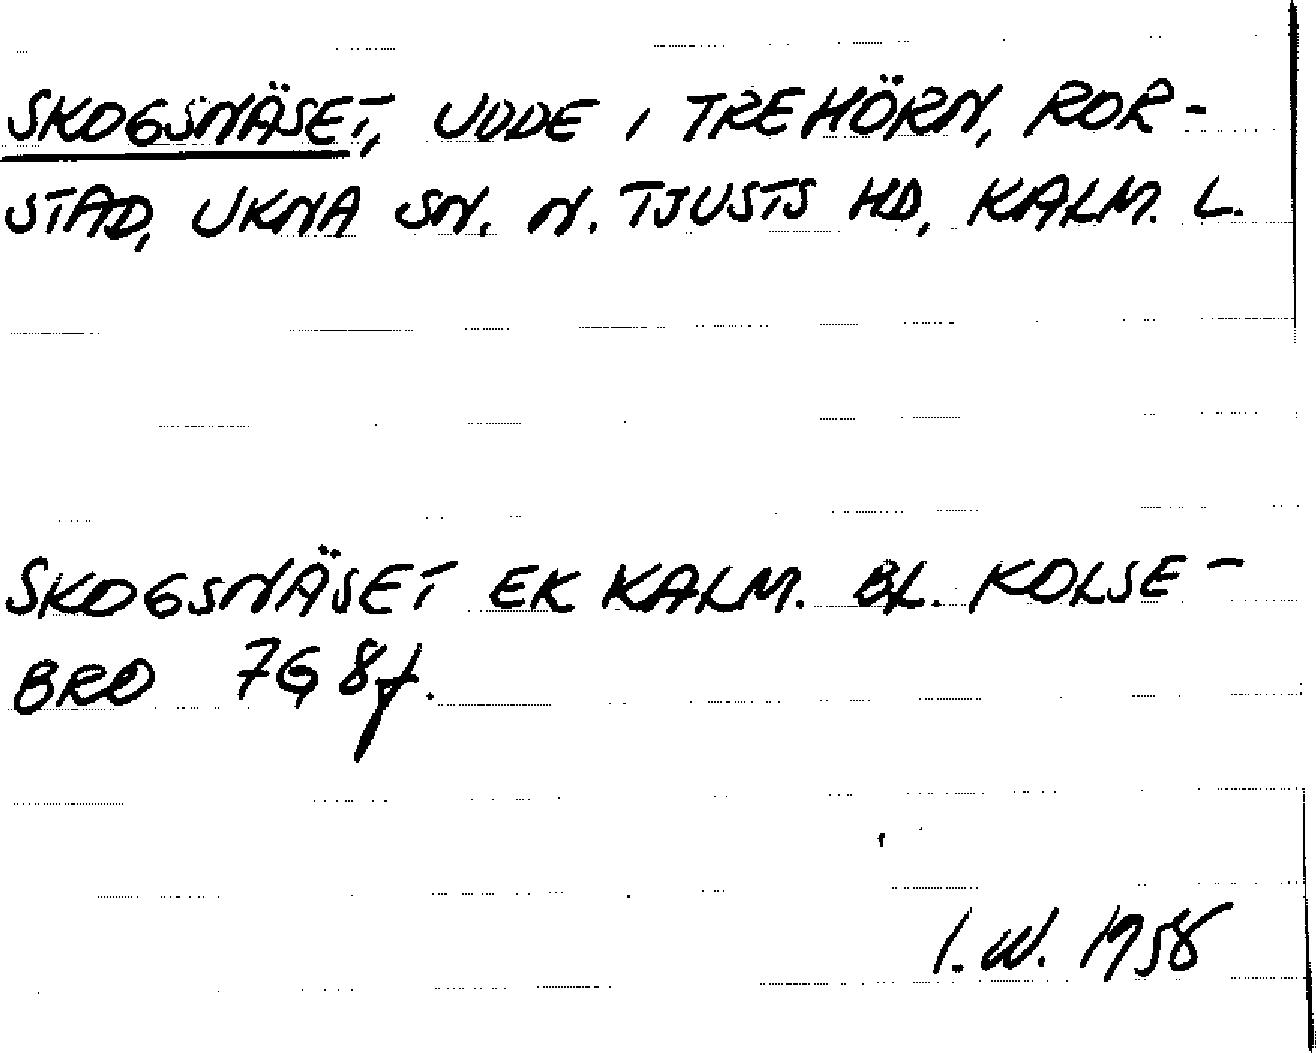 SKOGSNÄSET, UDDE I TREHÖRN, ROR-
STAD, UKNA SN. N. TJUSTS HD, KALM. L.
SKOGSNÄSET EK KALM. BL. KOLSE-
BRO 7G 8f.
I. W. 1958